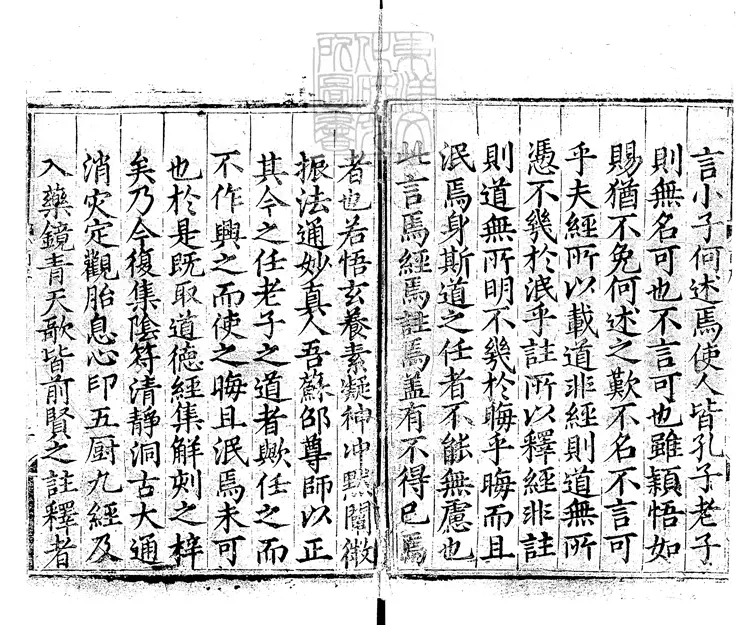 言小子何述焉使人皆孔子老子
則無名可也不言可也雖穎悟如
賜猶不免何述之歎不名不言可
乎夫經所以載道非經則道無所
憑不幾於泯乎註所以釋經非註
則道無所明不幾於晦乎晦而且
泯焉身斯道之任者不能無慮也
此言焉經焉註焉蓋有不得已焉
者也若悟玄養素凝神冲默闡微
振法通妙真人吾蘇邵尊師以正
其今之任老子之道者歟任之而
不作興之而使之晦且泯焉未可
也於是既取道德經集解刺之梓
矣乃今復集陰符清靜洞古大通
消灾定觀胎息心印五厨九經及
入藥鏡青天歌皆前賢之註釋者